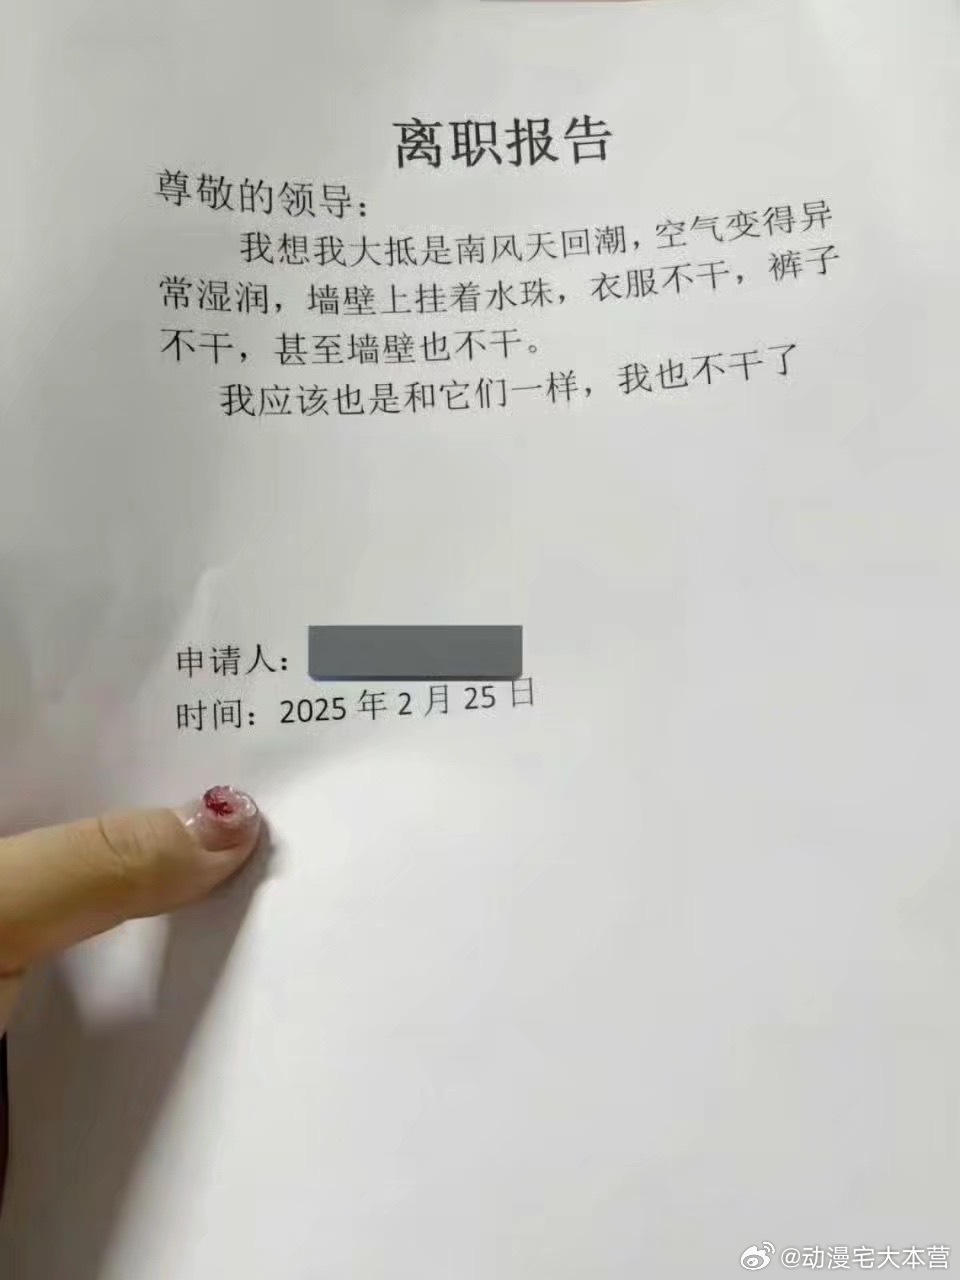 离职报告
尊敬的领导：
我想我大抵是南风天回潮，空气变得异
常湿润，墙壁上挂着水珠，衣服不干，裤子
不干，甚至墙壁也不干。
我应该也是和它们一样，我也不干了
申请人：
时间：2025年2月25日
@动漫宅大本营